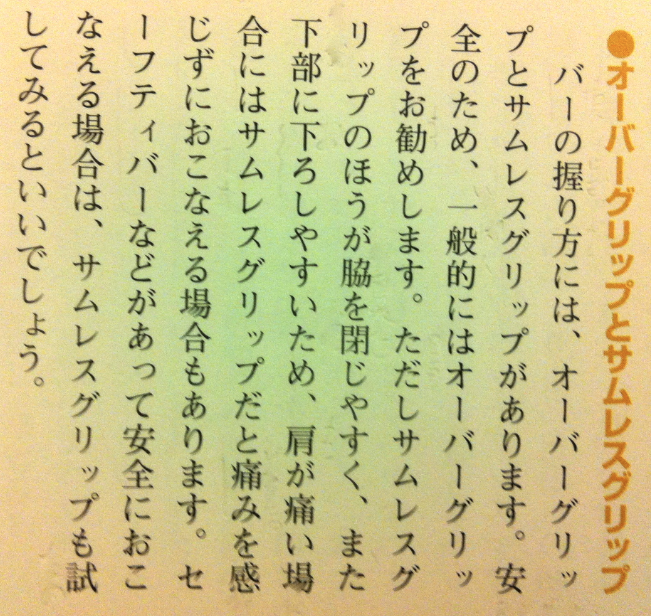 ●オーバーグリップとサムレスグリップ
バーの握り方には、オーバーグリッ
プとサムレスグリップがあります。安
全のため、一般的にはオーバーグリッ
プをお勧めします。ただしサムレスグ
リップのほうが脇を閉じやすく、また
下部に下ろしやすいため、肩が痛い場
合にはサムレスグリップだと痛みを感
じずにおこなえる場合もあります。セ
ーフティバーなどがあって安全におこ
なえる場合は、サムレスグリップも試
してみるといいでしょう。